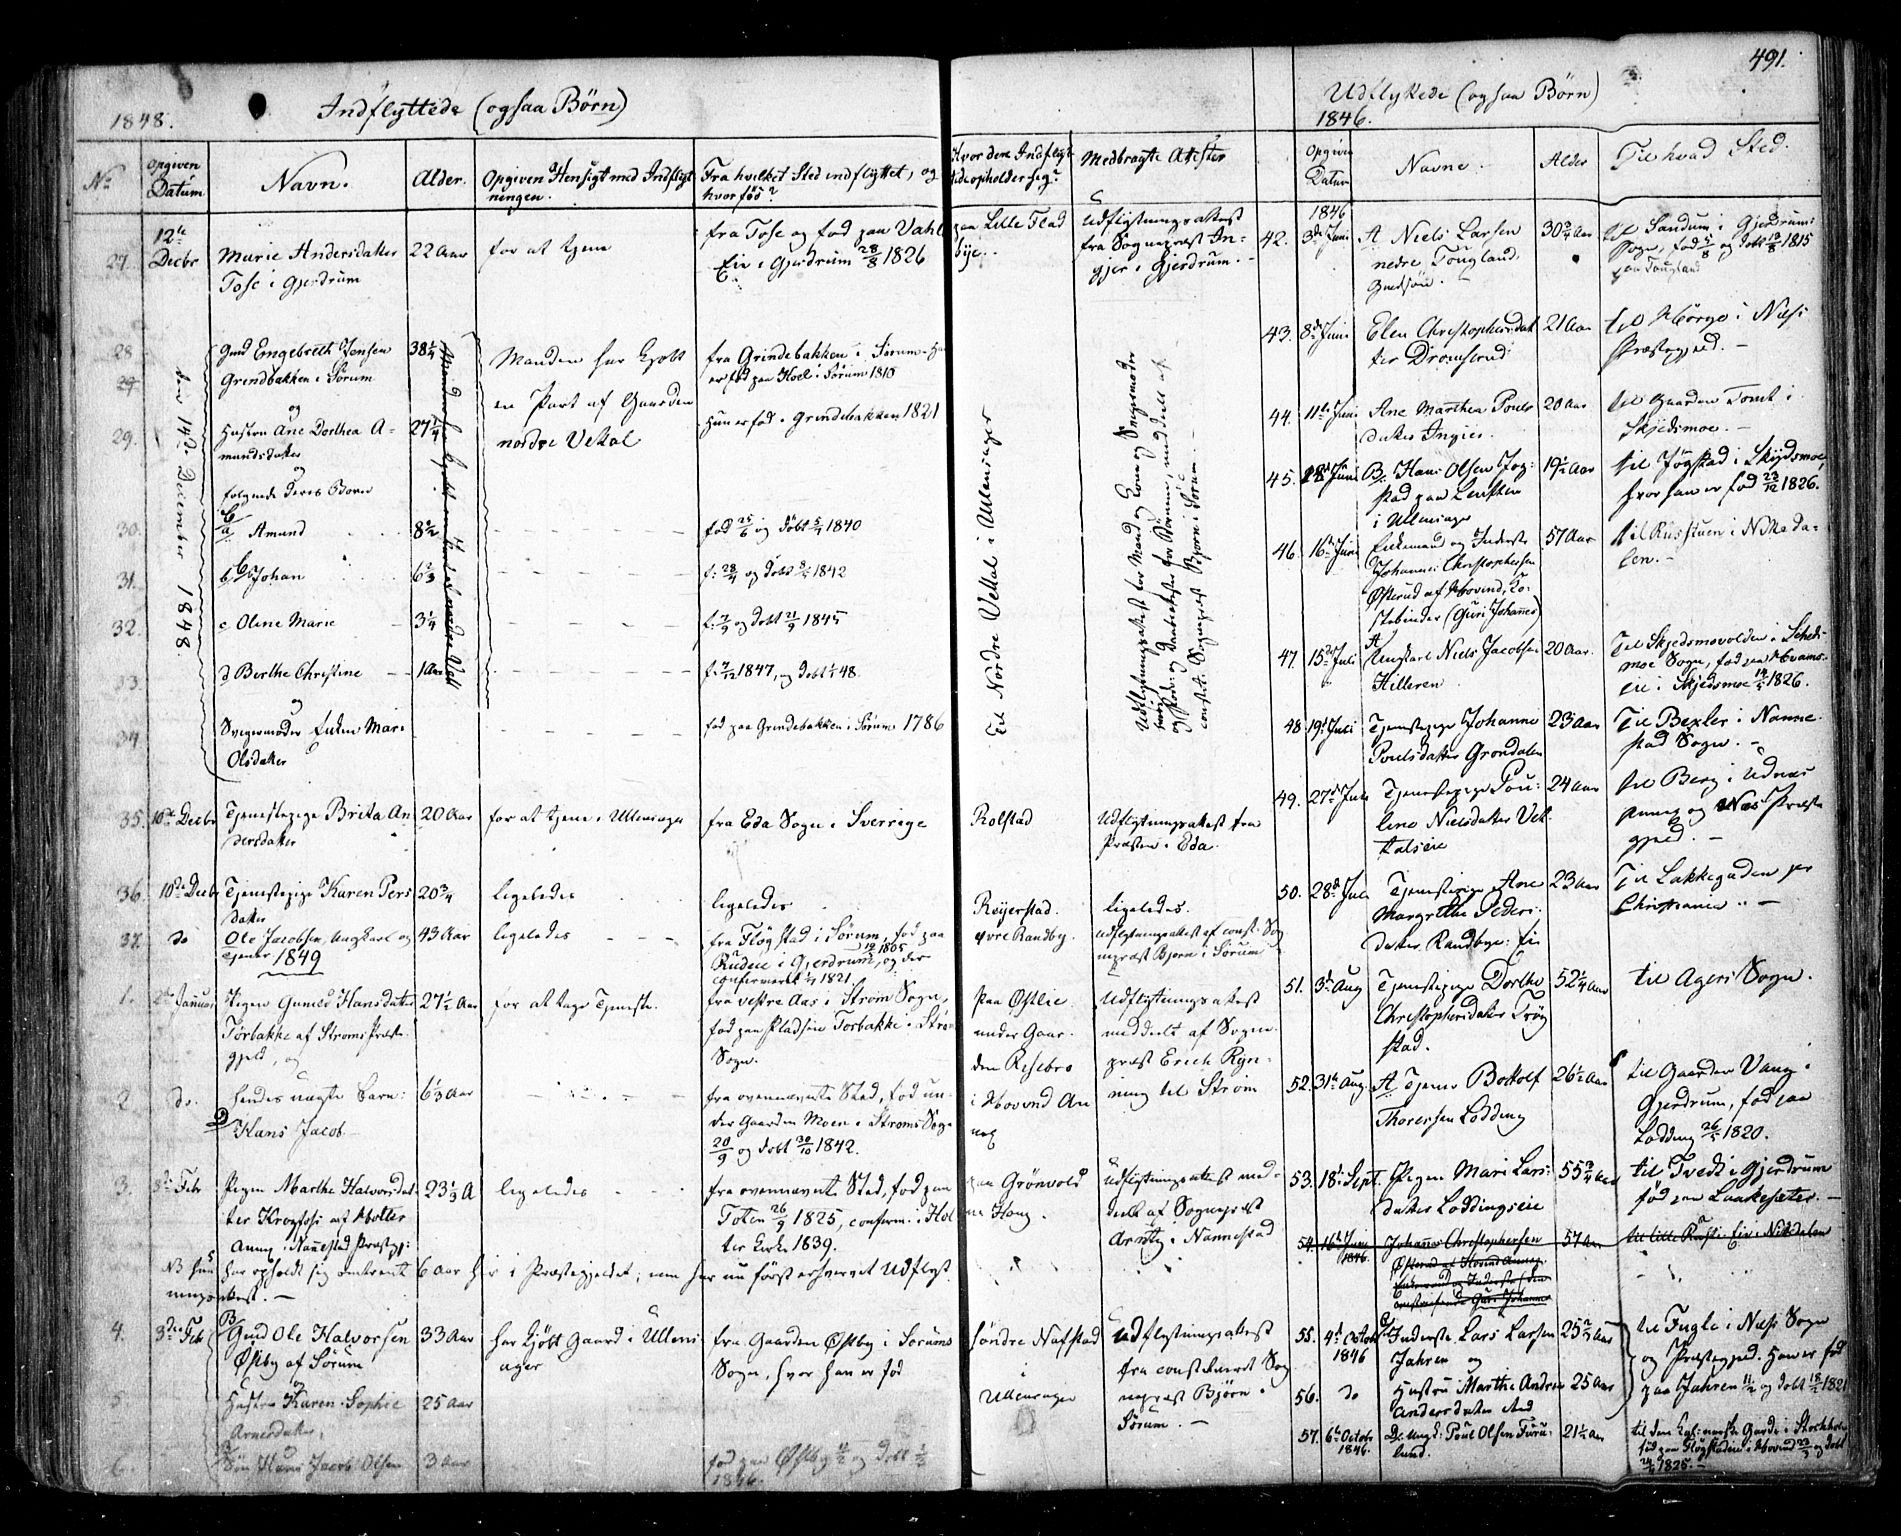 491.
1848. Indflyttede (ogsaa Børn)
No
Opgiven Datum
Navn.
Alder.
Opgiven Hensigt med Indflytningen.
Fra hvilket Sted indflyttet, og hvor fød?
Hvor den Indflyttede opholder sig?
Medbragte Attester
27.
12te Decbr
Marie Andersdatter
Tose i Gjerdrum
22 Aar
for at tjene
fra Tose og fød paa Vahl
Eie i Gjerdrum 28/8 1826
paa Lille Flad
bye.
Udflytningsattest
fra Sognepræst In-
gier i Gjerdrum.
den 14de December 1848.
28
29
Gmd Engebreth Jensen
Grindbakken i Sørum
38 1/4
Manden har kjøbt
en Part af Gaarden
nordre Vetal
fra Grindebakken i Sørum. Han
er fød paa Hoel i Sørum 1810
29.
og
Hustru Ane Dorthea A-
mundsdatter
27 1/4
Hun er fød i Grindebakken 1821
og
følgende deres Børn
30.
a Amund
8 1/2
fød 25/6 og døbt 5/7 1840
31.
b Johan
6 2/3
f: 28/4 og døbt 8/5 1842
32.
c Oline Marie
3 1/4
f: 7/9 og døbt 21/9 1845
33.
d Berthe Christine
1 Aar
f: 7/12 1847, og døbt 1/1 48.
34.
og
Svigermoder Enken Mari
Olsdatter
fød paa Grindebakken i Sørum 1786
Til Nordre Vettal i Ullensager
Udflytningsattest for Mand og Kone og Svigermoder
og Daabsattester for Børnene, meddelt af
const: Sognepræst Bjørn i Sørum.
35.
10de Decbr
Tjenestepige Brita An
dersdatter
20 Aar
for at tjene i Ullensager
fra Eda Sogn i Sverrige
Rolstad
Udflytningsattest fra
Præsten i Eda.
36.
10de Decbr
Tjenestepige Karen Pers
datter
20 3/4
ligeledes
ligeledes
Røyerstad.
ligeledes.
37.
do
Ole Jacobsen, Ungkarl og
Tjener
43 Aar
ligeledes
fra Fløgstad i Sørum, fød paa
Rudeie i Gjerdrum 12/10 1805, og der
confirmeret 1821.
øvre Randby.
Udflytningsattest af const: Sog
nepræst Bjørn i Sørum
1849
1.
2de Januar
Pigen Guneld Hansdatter
Torbakke af Strøms Præste-
gjeld, og
27 1/2 Aar
for at tage Tjeneste.
fra vestre Aas i Strøm Sogn,
fød paa Pladsen Torbakke i Strøm
Sogn.
Paa Østlie
under Gaar-
den Risebro
i Hovind An
nex
Udflytningsattest
meddeelt af Sogne-
præst Erich Ryn-
ning til Strøm
2
do.
hendes uægte Barn:
Hans Jacob
6 1/3 Aar
fra ovennævnte Sted, fød un-
der Gaarden Moen i Strøms Sogn
20/9 og døbt 30/10 1842.
3.
3de Febr
Pigen Marthe Halvorsdat-
ter Krogfossi af Holter
Annex i Nannestad Præstegj:
23 1/3 A
ligeledes
fra ovennævnte Sted, fød paa
Toten 26/9 1825, confirm: i Hol
ter Kirke 1839.
paa Grønvold
Haug.
Udflytningsattest med-
deelt af Sognepræst
i Nannestad
NB hun har opholdt sig omtrent 6 Aar her i Præstegjeldet; men har nu først erhvervet Udflyt
ningsattest.
4.
3de Febr
Gmd Ole Halvorsen
Østby af Sørum
33 Aar
har kjøbt Gaard i Ullens
ager
fra Gaarden Østby i Sørums
Sogn, hvor han er fød
søndre Nafstad
i
Ullensager
Udflytningsattest
fra constitueret Sog
nepræst Bjørn i
Sørum.
5.
og
Hustru Karen Sophie
Arnesdatter,
25 Aar
6.
Søn Hans Jacob Olsen
3 Aar
fød paa Østby og døbt
1846.
Udflyttede (ogsaa Børn)
1846.
Opgiven Datum
Navne.
Alder
Til hvad Sted.
1846
42.
3de Juni
A Niels Larsen
nedre Tougland
Gmdsøn.
30 3/4 Aar
til Sandum i Gjerdrums
Sogn, fød 5/8 og døbt 13/8 1815
paa Tougland
43.
8de Juni
Elen Christophersdat
ter Dromsrud
21 Aar
til Hørgo i Næss
Præstegjeld.
44.
11te Juni
Ane Marthea Pouls
datter Ingier.
20 Aar
til Gaarden Tomt i
Skjedsmoe.
45.
Juni
B. Hans Olsen Jog-
stad paa
i Ullensager
19 1/2 Aar
til Jøgstad i Skjedsmoe,
hvor han er fød 23/12 1826.
46.
16de Juni
Enkemand og Inderste
Johannes Christophersen
Østerud af Hovind, Ko-
stebinder (Guri Johannes)
57 Aar
til Russtuen i Nittedа-
len.
47.
15de Juli
A
Ungkarl Niels Jacobsen
Hilleren
20 Aar.
Til Skjedsmovolden i Skeds-
moe Sogn, fød paa Hvams-
eie i Skjedsmoe 14/5 1826.
48
19de Juli
Tjenestepige Johanne
Poulsdatter Grøndalen
23 Aar
Til Bexler i Nanne-
stad Sogn.
49.
27de Juli
Tjenestepige Pou-
line Nielsdatter Vet-
talseie
24 Aar
til Berg i Udnæs
Annex og Næs Præste
gjeld.
50.
28de Juli
Tjenestepige Ane
Margrethe Peders-
datter Randbye: Eie
23 Aar
Til Lakkegaden per
Christiania.
51.
3de Aug
Tjenestepige Dorthe
Christophersdatter Trøg
stad.
52 1/4 Aar
til Agers Sogn.
52.
31te Aug.
A Tjener Bottolf
Thoresen Lodding
26 1/2 Aar
til Gaarden Vang i
Gjerdrum, fød paa
Lodding 26/5 1820.
53.
18de Sept.
Pigen Mari Lars-
datter Loddingseie
55 3/4 Aar
til Tvedt i Gjerdrum
fød paa Laakesæter.
54.
16de Juni
1846.
Johannes Christophersen
Østerud af Hovind Annex,
Enkemand og Inderste (den
Guri Johannes
57 Aar
til lille Eie i Nittedalen
55.
4de Octob
1846
Inderste Lars Larsen
Jahren og
25 2/3 Aar
til Fugle i Næss Sogn
og Præstegjeld. Han er fød
paa Jahren 11/2 og døbt 18/2 1821
56.
do
Hustru Marthe Andrea
Andersdatter
25 Aar
57.
6te Octobr
1846.
Ungk: Poul Olsen Furu-
lund.
21 1/2 Aar
til den Kgl: norske Garde i Stockholm
fød paa Fløgstadeie i Hovind og døbt
1825.